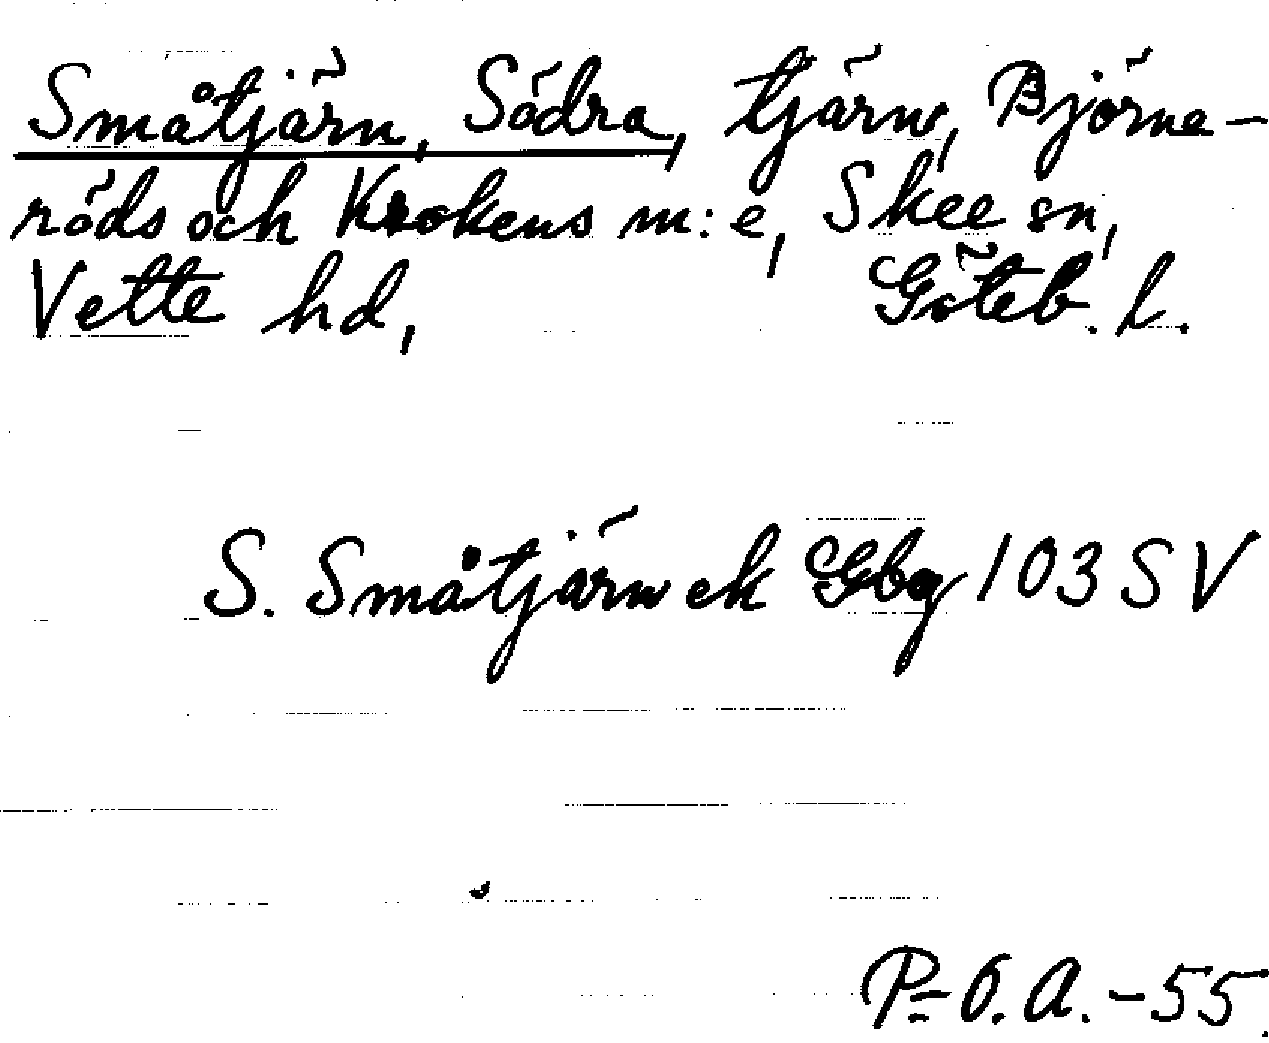 Småtjärn, Södra, tjärn, Björne-
röds och Krokens m:e, Skee sn,
Vette hd, Göteb. l.
S. Småtjärn ek Gbg 103 SV
P=O.A.-55.